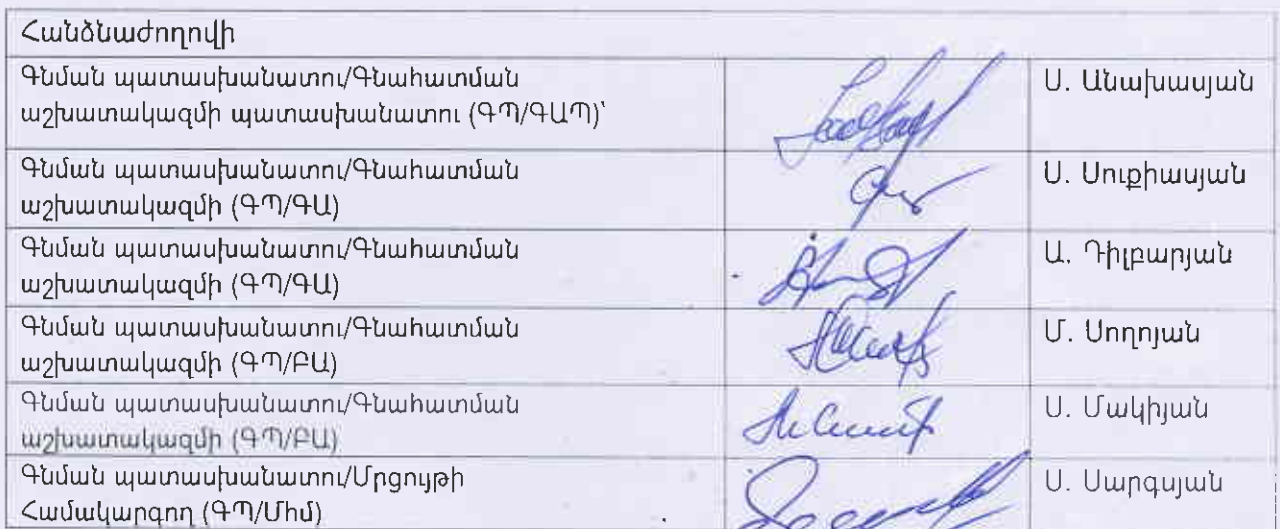 Հանձնաժողովի
Գնման պատասխանատու/Գնահատման
աշխատակազմի պատասխանատու (ԳՊ/ԳԱՊ)՝
Ս. Անախասյան
Գնման պատասխանատու/Գնահատման
աշխատակազմի (ԳՊ/ԳԱ)
Ս. Սուքիասյան
Գնման պատասխանատու/Գնահատման
աշխատակազմի (ԳՊ/ԳԱ)
Ա. Դիլբարյան
Գնման պատասխանատու/Գնահատման
աշխատակազմի (ԳՊ/ԲԱ)
Մ. Սողոյան
Գնման պատասխանատու/Գնահատման
աշխատակազմի (ԳՊ/ԲԱ)
Ս. Մակիյան
Գնման պատասխանատու/Մրցույթի
Համակարգող (ԳՊ/Մհմ)
Ս. Սարգսյան